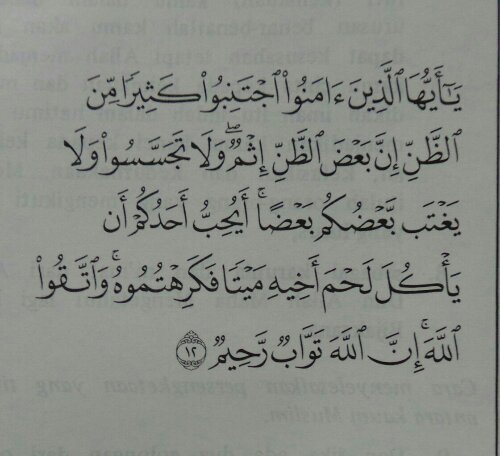 يَٰٓأَيُّهَا ٱلَّذِينَ ءَامَنُوا۟ ٱجْتَنِبُوا۟ كَثِيرًا مِّنَ
ٱلظَّنِّ إِنَّ بَعْضَ ٱلظَّنِّ إِثْمٌ ۖ وَلَا تَجَسَّسُوا۟ وَلَا
يَغْتَب بَّعْضُكُم بَعْضًا ۚ أَيُحِبُّ أَحَدُكُمْ أَن
يَأْكُلَ لَحْمَ أَخِيهِ مَيْتًا فَكَرِهْتُمُوهُ ۚ وَٱتَّقُوا۟
ٱللَّهَ ۚ إِنَّ ٱللَّهَ تَوَّابٌ رَّحِيمٌ ١٢